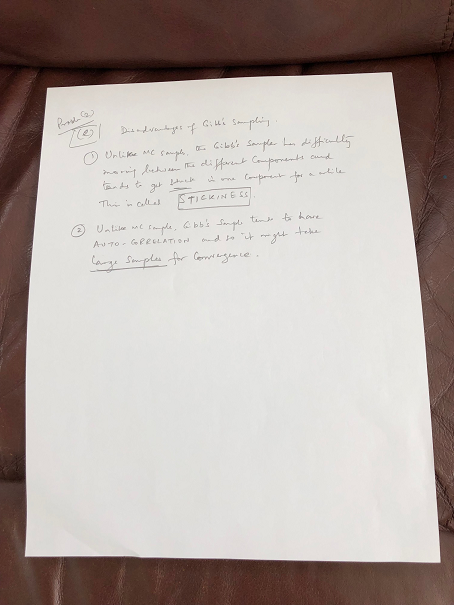 Prob (2)
(e) Disadvantages of Gibb's Sampling.
① Unlike MC sample, the Gibb's Sampler has difficulty
moving between the different Components and
tends to get stuck in one Component for a while
This is called STICKINESS.
② Unlike MC sample, Gibb's Sample tends to have
AUTO-CORRELATION and so it might take
Large Samples for Convergence.